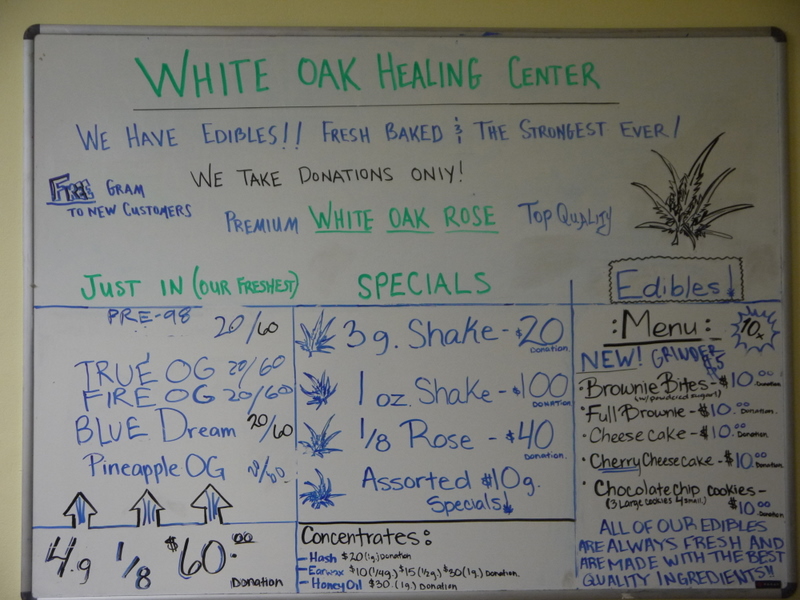 WHITE OAK HEALING CENTER
WE HAVE EDIBLES!! FRESH BAKED & THE STRONGEST EVER!
WE TAKE DONATIONS ONLY!
FREE GRAM
TO NEW CUSTOMERS
PREMIUM WHITE OAK ROSE TOP QUALITY
JUST IN (OUR FRESHEST)
PRE-98 20/60
TRUE OG 20/60
FIRE OG 20/60
BLUE Dream 20/60
Pineapple OG 20/60
4.g 1/8 $60.00
Donation
SPECIALS
3g. Shake - $20
Donation
1 oz. Shake - $100
DONATION
1/8 Rose - $40
Donation
Assorted $10g.
Specials!
Concentrates:
- Hash $20 (1g.) Donation
- Earwax $10 (1/4g.) $15 (1/2g.) $30 (1g.) Donation
- Honey Oil $30 (1g.) Donation
Edibles!
:Menu: 10x
NEW! GRINDERS $5
• Brownie Bites - $10.00 Donation
(w/powdered sugar!)
• Full Brownie - $10.00 Donation
• Cheese cake - $10.00 Donation
• Cherry Cheese cake - $10.00 Donation
• Chocolate chip cookies -
(3 Large cookies 4 small) $10.00
Donation
ALL OF OUR EDIBLES
ARE ALWAYS FRESH AND
ARE MADE WITH THE BEST
QUALITY INGREDIENTS!!